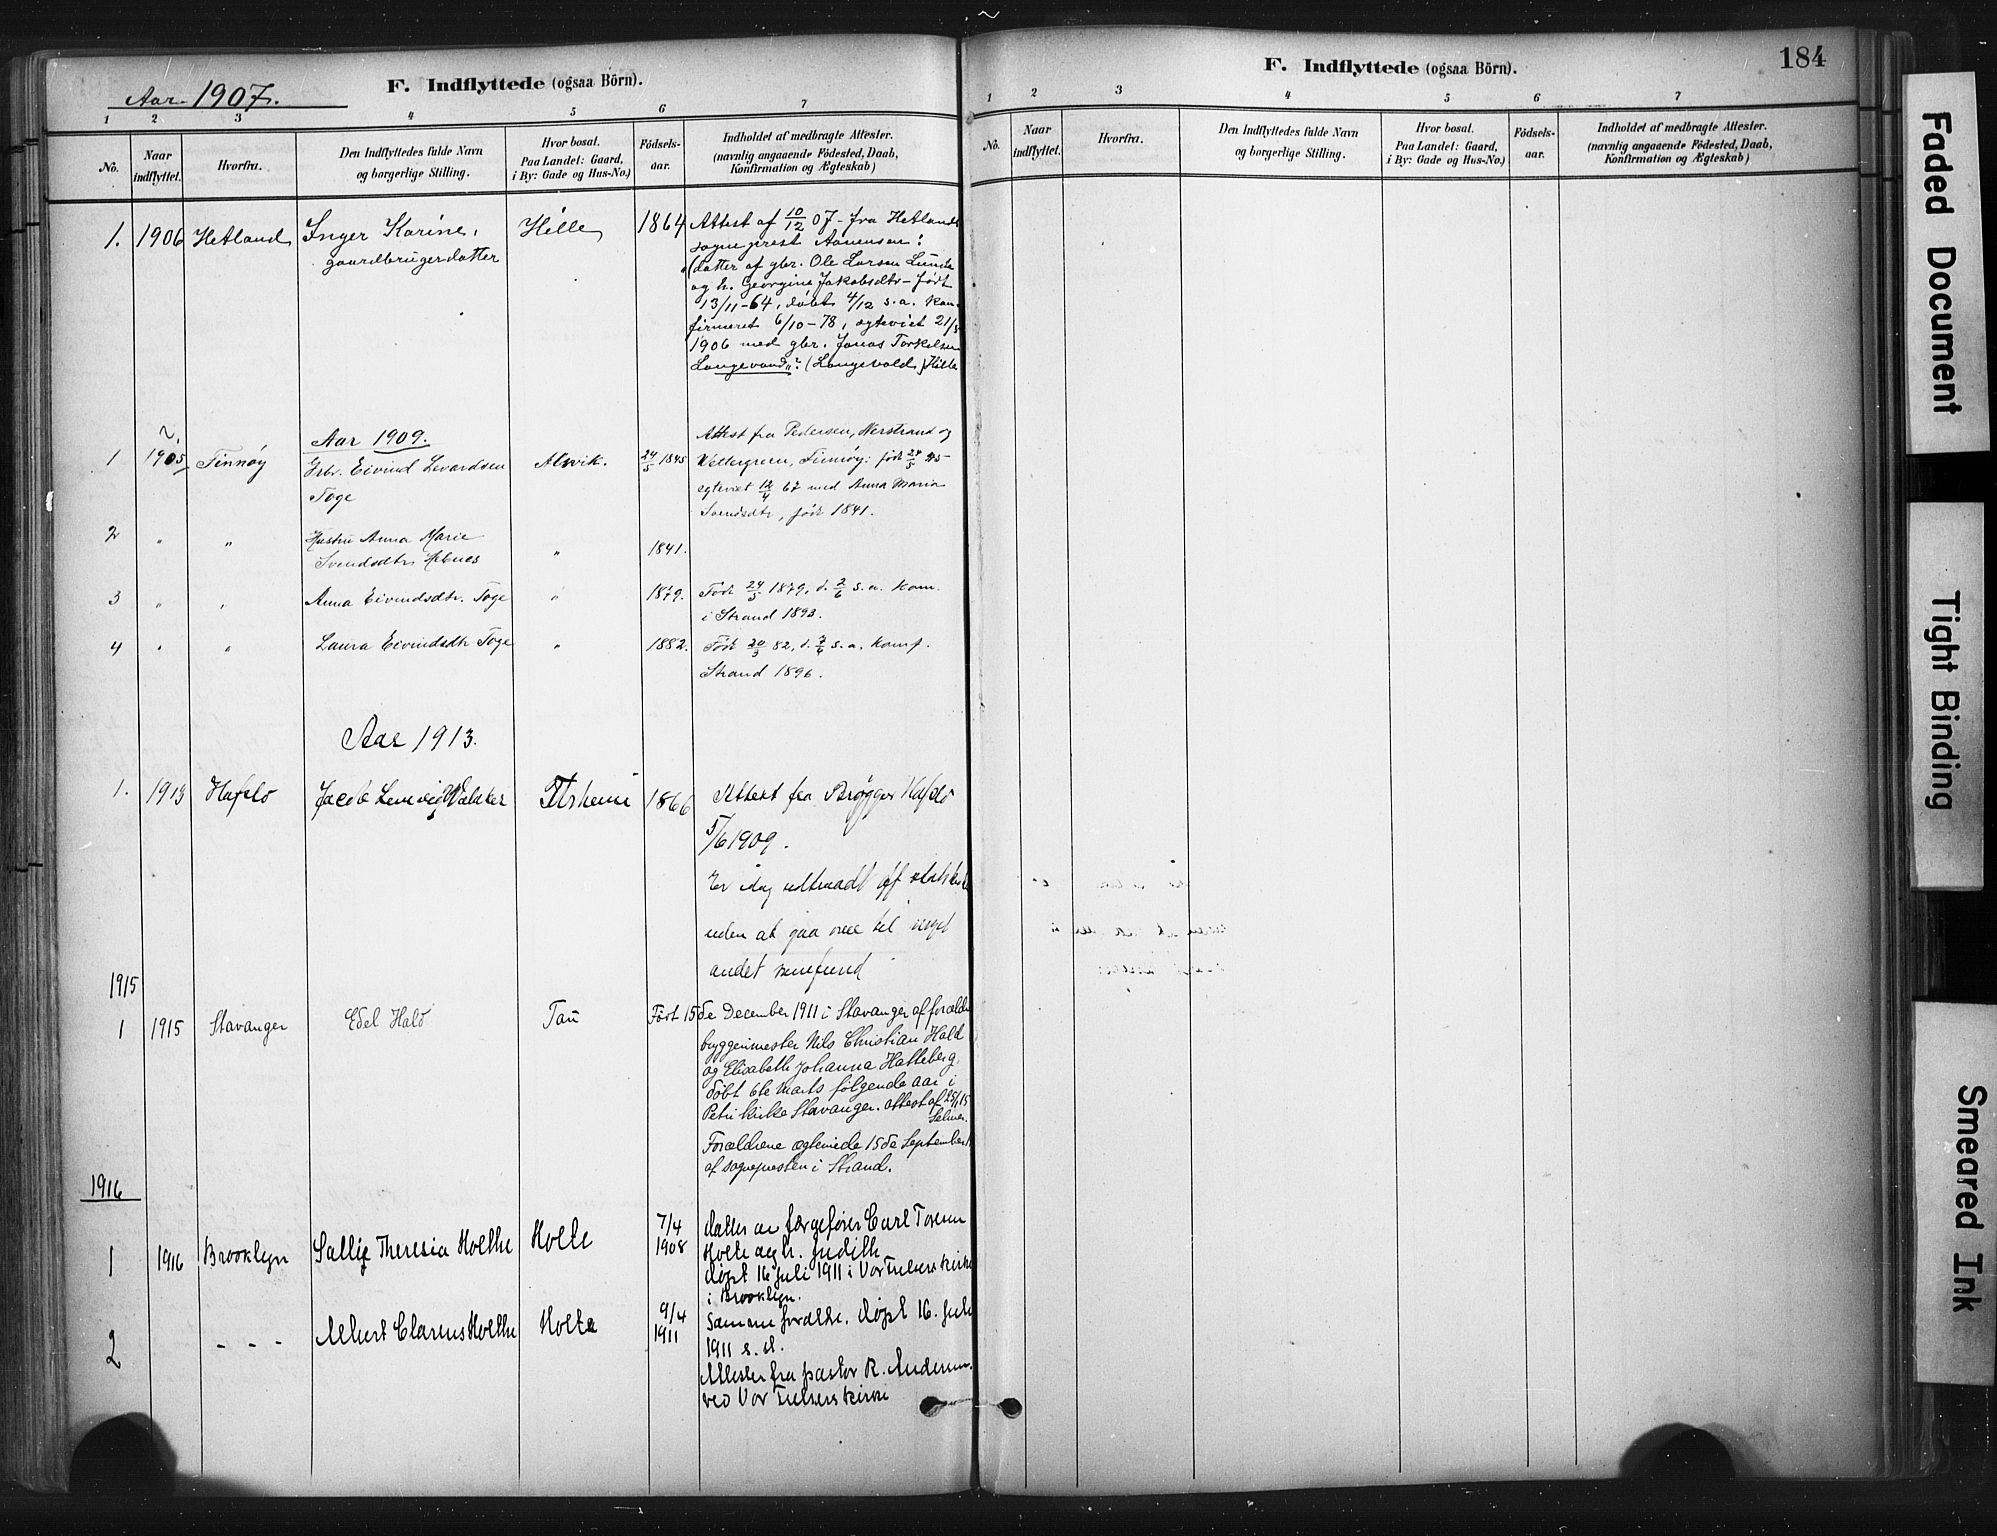 Aar 1907.
F. Indflyttede (ogsaa Börn).
1 2 3 4 5 6 7
No.
Naar indflyttet.
Hvorfra.
Den Indflyttedes fulde Navn
og borgerlige Stilling.
Hvor bosat.
Paa Landet: Gaard,
i By: Gade og Hus-No.)
Fødsels-
aar.
Indholdet af medbragte Attester.
(navnlig angaaende Födested, Daab,
Konfirmation og Ægteskab)
1. 1906 Hetland Inger Karine, Hille 1864 Attest af 10/12 07 - fra Hetland
gaardbrugerdatter sogneprest Aanensen:
(datter af gbr. Ole Larsen Lunde
og h. Georgine Jakobsdtr - født
13/11-64, døbt 4/12 s.a. kon-
firmeret 6/10-78, ægteviet 21/
1906 med gbr. Jonas Torkelsen
Langevand"? (Langevold) Hille
Aar 1909.
Attest fra Pedersen, Nerstrand og
1 1905 Finnøy Gbr. Eivind Levardsen Alsvik. 24/5 1845 Vettergreen, Finnøy: født 24/5 45-
Toge
egteviet 12/4 67 med Anna Maria
Svendsdtr, født 1841.
2 " " Hustru Anna Marie
Svendsdtr. " 1841.
3 " " Anna Eivindsdtr. Toge " 1879. Født 24/5 1879, d. 2/6 s.a. konf.
i Strand 1893.
4 " " Laura Eivindsdtr Toge " 1882. Født 20/3 82, d. 7/4 s.a. konf.
Strand 1896.
Aar 1913.
1. 1913 Hafslo Jacob Lemvig 1866 Attest fra Brøgger Hafslo
5/6 1909.
Er idag udtraadt af
uden at gaa over til noget
andet samfund
1915
1 1915 Stavanger Edel Hald Tau Født 15de December 1911 i Stavanger af forældre
byggemester Nils Christian Hald
og Elisabeth Johanna Hatteberg,
døbt 6te Marts følgende aar i
Petri kirke Stavanger. Attest af
Selmer.
Forældrene ægteviede 15de September
af sognepresten i Strand.
1916
1 1916 Brooklyn Sally Theresia Holthe Holte 7/4
1908 datter av færgefører Carl Toresen
Holte og h. Judith
døpt 16 juli 1911 i Vor Frelsers kirke
i Brooklyn.
2 - - - Albert Clarens Holthe Holte 9/4
1911 Samme foreldre. døpt 16. juli
1911 s. st.
Attester fra pastor R. Andersen
ved Vor Frelsers kirke
F. Indflyttede (ogsaa Börn).
184
1 2 3 4 5 6 7
No.
Naar
indflyttet.
Hvorfra.
Den Indflyttedes fulde Navn
og borgerlige Stilling.
Hvor bosat.
Paa Landet: Gaard,
i By: Gade og Hus-No.)
Födsels-
aar.
Indholdet af medbragte Attester.
(navnlig angaaende Födested, Daab,
Konfirmation og Ægteskab)
Faded Document
Tight Binding
Smeared Ink